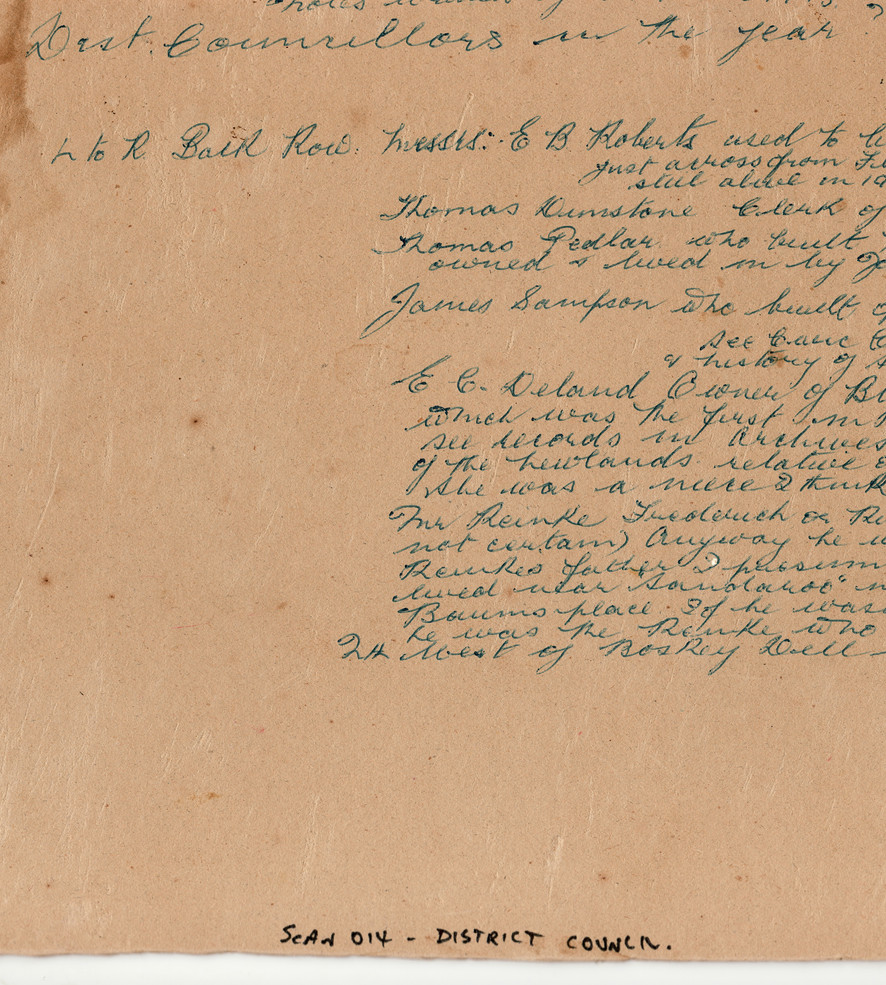 notes
Dist. Councillors in the year
L to R Back Row. Messrs: E B Roberts used to
just across from
still alive in 19
Thomas Dunstone Clerk of
Thomas Pedlar who built
owned & lived in by
James Sampson who built
see
& history of
E C. Deland Owner of
which was the first in
see records in Archives
of the Newlands relative
she was a niece I think
Mr Reinke Frederich or
not certain) Anyway he
Reinkes father I presum
lived near "Sandaroo"
Baums place. If he was
he was the Reinke who
West of Boskey Dell
SCAN 014 - DISTRICT COUNCIL.